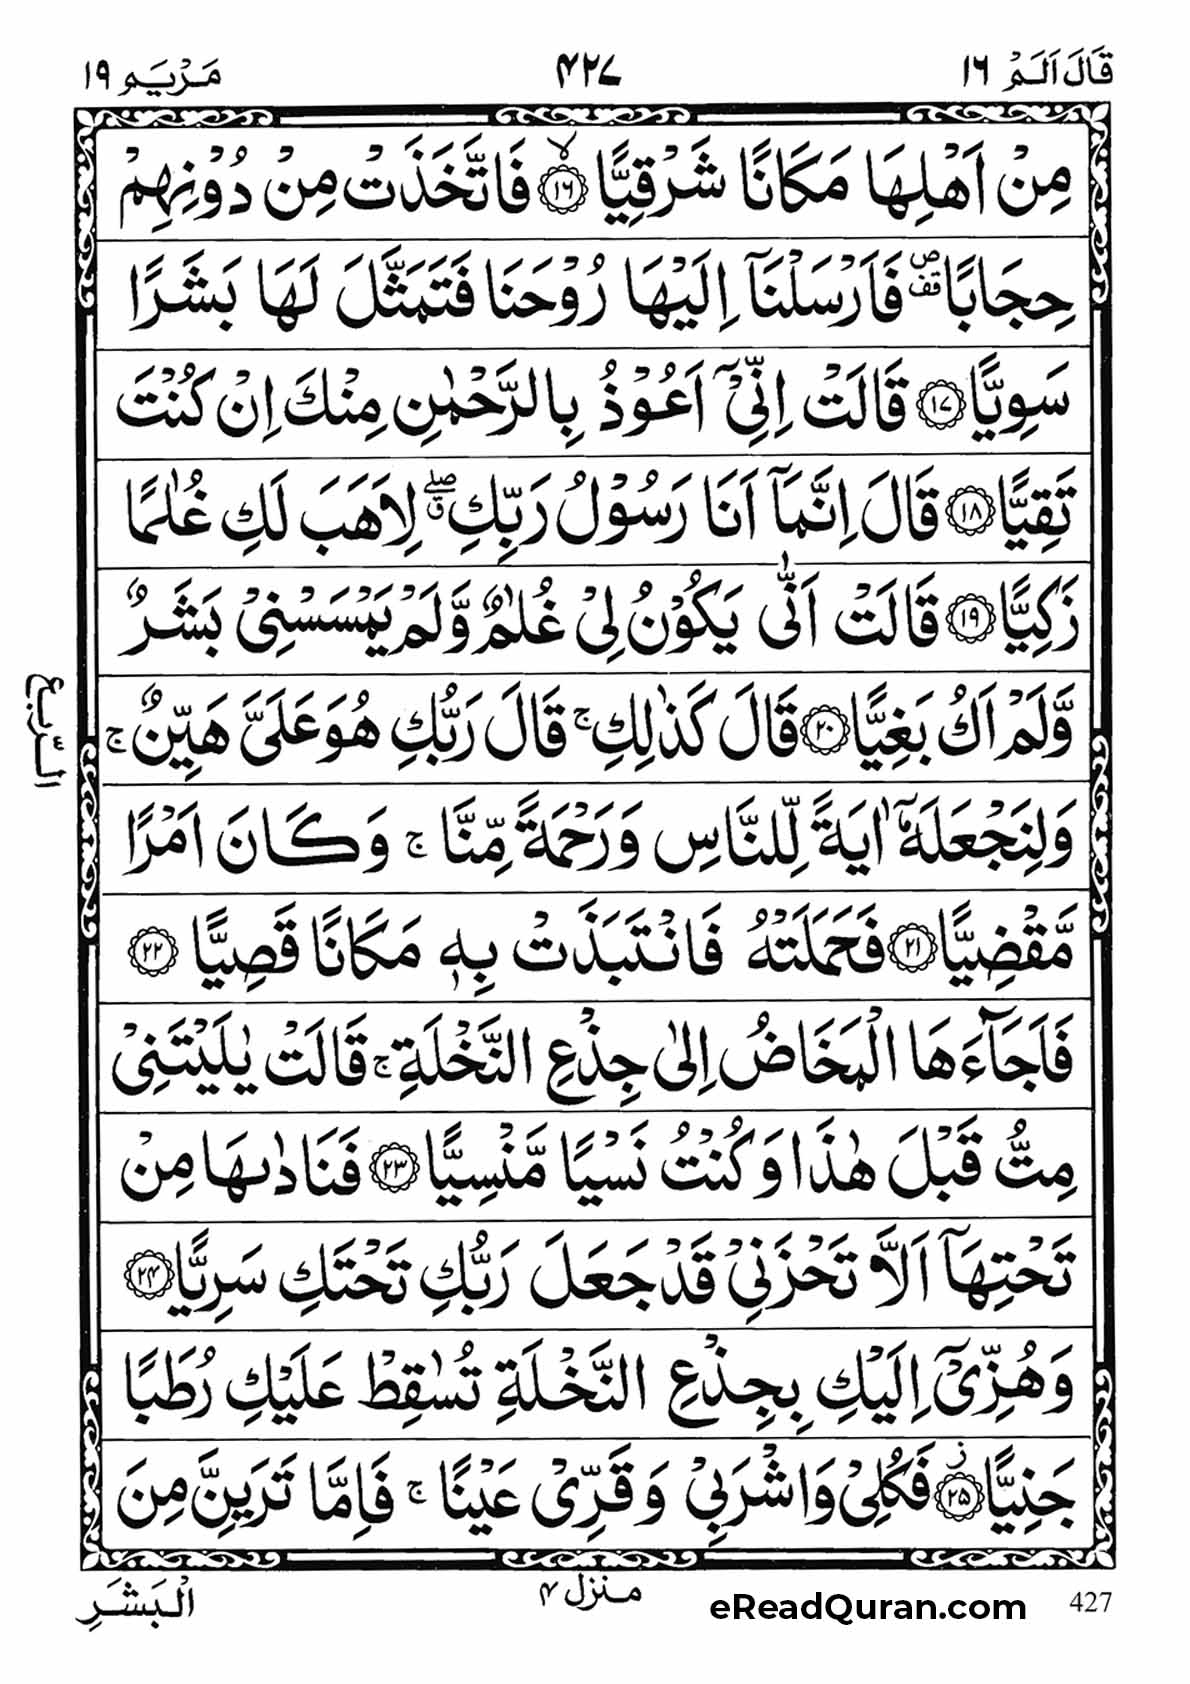 قَالَ اَلَمْ ١٦ ٤٢٧ مَرْيَم ١٩
مِنْ اَهْلِهَا مَكَانًا شَرْقِيًّا ۙ ١٦ فَاتَّخَذَتْ مِنْ دُوْنِهِمْ
حِجَابًا ۪ قف فَاَرْسَلْنَاۤ اِلَيْهَا رُوْحَنَا فَتَمَثَّلَ لَهَا بَشَرًا
سَوِيًّا ١٧ قَالَتْ اِنِّيْۤ اَعُوْذُ بِالرَّحْمٰنِ مِنْكَ اِنْ كُنْتَ
تَقِيًّا ١٨ قَالَ اِنَّمَاۤ اَنَا رَسُوْلُ رَبِّكِ ۖق لِاَهَبَ لَكِ غُلٰمًا
زَكِيًّا ١٩ قَالَتْ اَنّٰى يَكُوْنُ لِيْ غُلٰمٌ وَّلَمْ يَمْسَسْنِيْ بَشَرٌ
وَّلَمْ اَكُ بَغِيًّا ٢٠ قَالَ كَذٰلِكِ ۚ قَالَ رَبُّكِ هُوَ عَلَيَّ هَيِّنٌ ۚ
وَلِنَجْعَلَهٗۤ اٰيَةً لِّلنَّاسِ وَرَحْمَةً مِّنَّا ۚ وَكَانَ اَمْرًا
مَّقْضِيًّا ٢١ فَحَمَلَتْهُ فَانْتَبَذَتْ بِهٖ مَكَانًا قَصِيًّا ٢٢
فَاَجَآءَهَا الْمَخَاضُ اِلٰى جِذْعِ النَّخْلَةِ ۚ قَالَتْ يٰلَيْتَنِيْ
مِتُّ قَبْلَ هٰذَا وَكُنْتُ نَسْيًا مَّنْسِيًّا ٢٣ فَنَادٰىهَا مِنْ
تَحْتِهَاۤ اَلَّا تَحْزَنِيْ قَدْ جَعَلَ رَبُّكِ تَحْتَكِ سَرِيًّا ٢٤
وَهُزِّيْۤ اِلَيْكِ بِجِذْعِ النَّخْلَةِ تُسٰقِطْ عَلَيْكِ رُطَبًا
جَنِيًّا ز ٢٥ فَكُلِيْ وَاشْرَبِيْ وَقَرِّيْ عَيْنًا ۚ فَاِمَّا تَرَيِنَّ مِنَ
الرّبع
الْبَشَرِ منزل ٤ eReadQuran.com 427